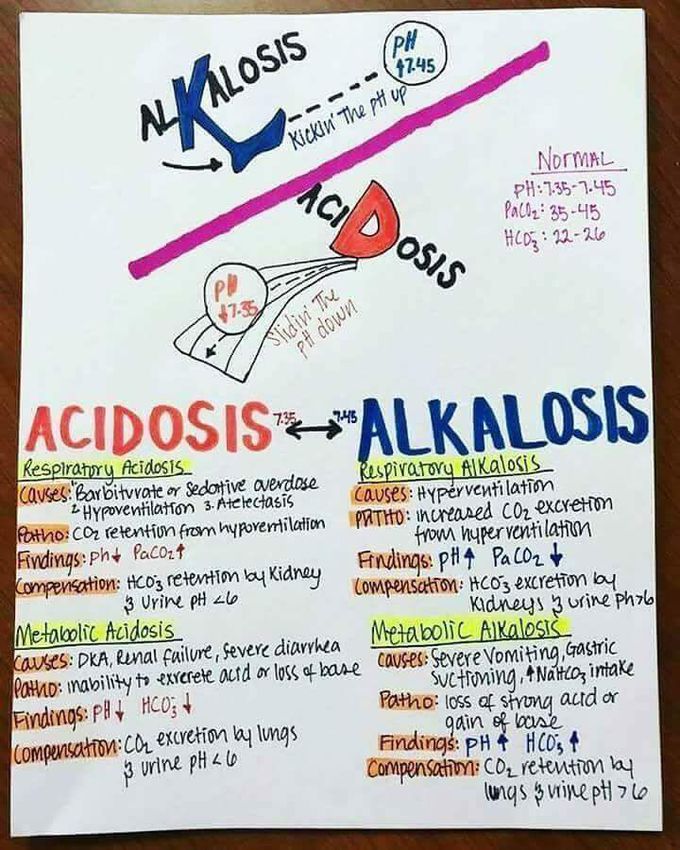 ALKALOSIS
PH
↑7.45
Kickin' The pH up
NORMAL
PH: 7.35-7.45
PaCO₂: 35-45
HCO₃⁻: 22-26
ACIDOSIS
PH
↓7.35
Slidin' The
PH down
ACIDOSIS 7.35 ↔ 7.45 ALKALOSIS
Respiratory Acidosis
Causes: Barbiturate or Sedative overdose
2. Hypoventilation 3. Atelectasis
Patho: CO₂ retention from hypoventilation
Findings: Ph↓ PaCO₂↑
Compensation: HCO₃⁻ retention by Kidney
& Urine pH <6
Metabolic Acidosis
Causes: DKA, Renal failure, severe diarrhea
Patho: inability to exrerete acid or loss of base
Findings: PH↓ HCO₃⁻↓
Compensation: CO₂ excretion by lungs
& urine PH <6
Respiratory Alkalosis
Causes: Hyperventilation
PATHO: increased CO₂ excretion
from hyperventilation
Findings: pH↑ PaCO₂↓
Compensation: HCO₃⁻ excretion by
Kidneys & urine Ph>6
Metabolic Alkalosis
Causes: Severe Vomiting, Gastric
Suctioning, ↑NaHCO₃ intake
Patho: loss of strong acid or
gain of base
Findings: PH↑ HCO₃⁻↑
Compensation: CO₂ retention by
lungs & urine pH >6